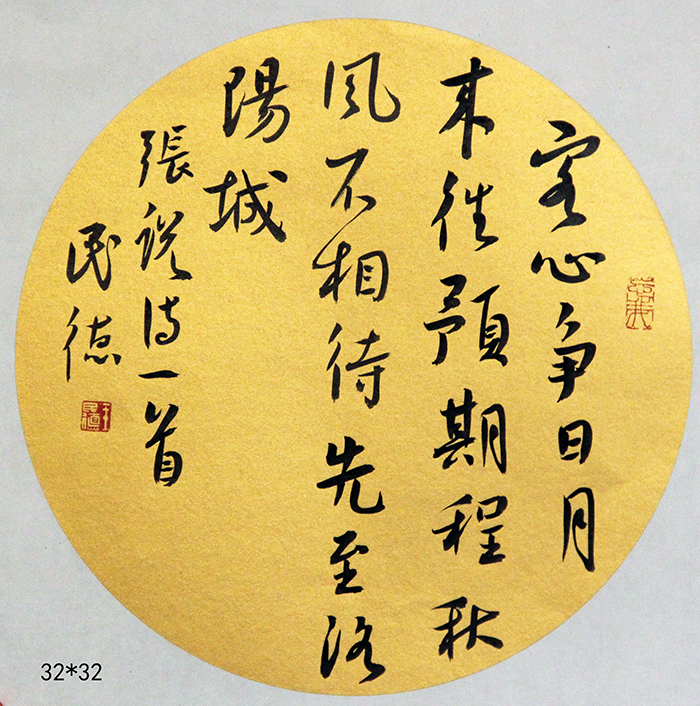 客心争日月
来往預期程秋
風不相待先至洛
陽城
張説诗一首
民德
32*32